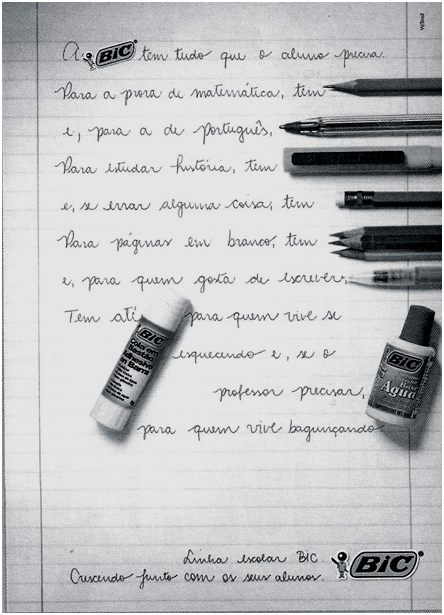 A BIC tem tudo que o aluno precisa.
Para a prova de matemática, tem
e, para a de português,
Para estudar história, tem
e, se errar alguma coisa, tem
Para páginas em branco, tem
e, para quem gosta de escrever,
Tem até para quem vive se
esquecendo e, se o
professor precisar,
para quem vive bagunçando.
BIC
Cola em
Bastão
Adhesivo
en Barra
BIC
Base
Agua
Linha escolar BIC
Crescendo junto com os seus alunos.
BIC